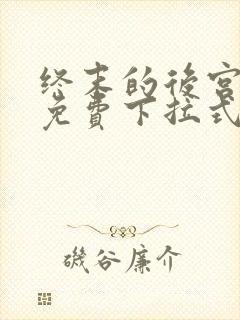 终末的後宮
免費下拉式
磯谷廉介